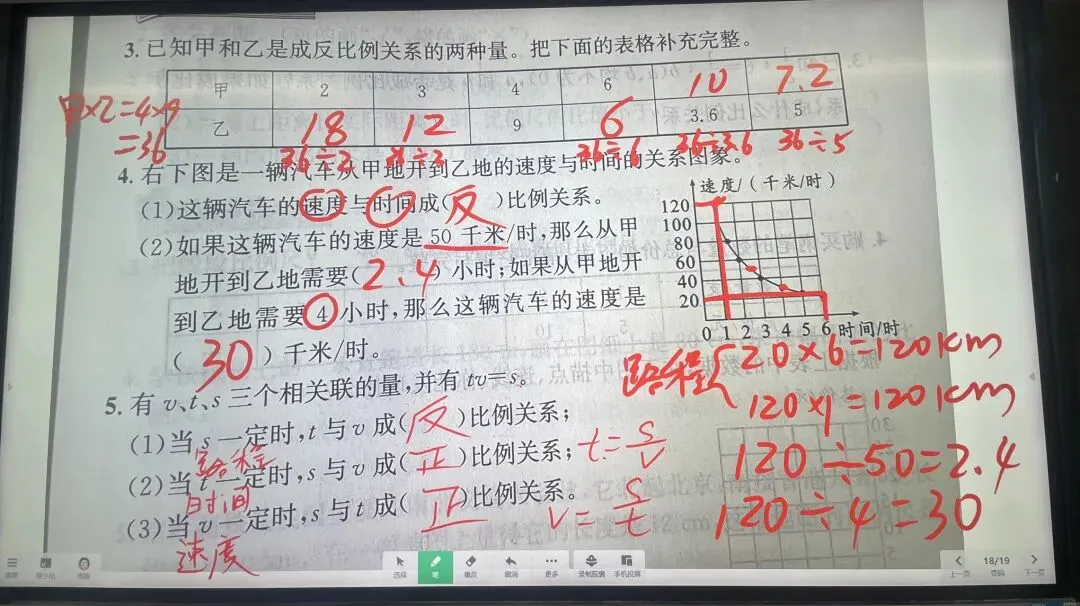 3. 已知甲和乙是成反比例关系的两种量。把下面的表格补充完整。
甲 2 3 4 6 10 7.2
乙 18 12 9 6 3.6 5
甲×乙=4×9
=36
36÷2 36÷3 36÷6 36÷3.6 36÷5
4. 右下图是一辆汽车从甲地开到乙地的速度与时间的关系图象。
(1)这辆汽车的速度与时间成(反)比例关系。
(2)如果这辆汽车的速度是 50 千米/时,那么从甲
地开到乙地需要(2.4)小时;如果从甲地开
到乙地需要 4 小时,那么这辆汽车的速度是
(30)千米/时。
速度/(千米/时)
120
100
80
60
40
20
0 1 2 3 4 5 6 时间/时
路程{20×6=120km
120×1=120km
120÷50=2.4
120÷4=30
5. 有 v、t、s 三个相关联的量,并有 tv=s。
(1)当 s 一定时,t 与 v 成(反)比例关系;
路程
(2)当 t 一定时,s 与 v 成(正)比例关系; t=s/v
时间
(3)当 v 一定时,s 与 t 成(正)比例关系。 v=s/t
速度
选择 笔 橡皮 撤销 更多 录制胶囊 手机投屏
上一页 18/19 页码 下一页